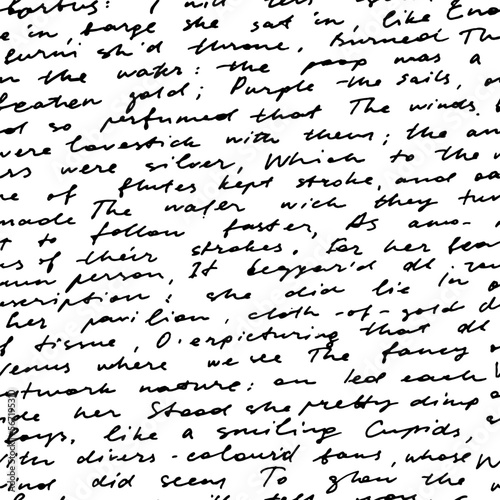 I will tell
e in, barge she sat in, like Eno
furni sh'd throne, Burned The
n the water: the poop was a
beaten gold; Purple the sails, a
d so perfumed that The winds
were lovesick with them; the an
rs were silver, Which to the
ne of flutes kept stroke, and oa
made The wafer wich they tur
t to follow faster, As amo-
us of their strokes. For her fear
own person, It beggar'd all
scription: she did lie In
her pavilion, cloth-of-gold
f tissue, O'erpicturing that all
Venus where we see The fancy
utwork nature: on led each
de her Stood she pretty dimp
oys, like a smiling Cupids,
th divers-colour'd fans, whose W
ind did seem To glow the